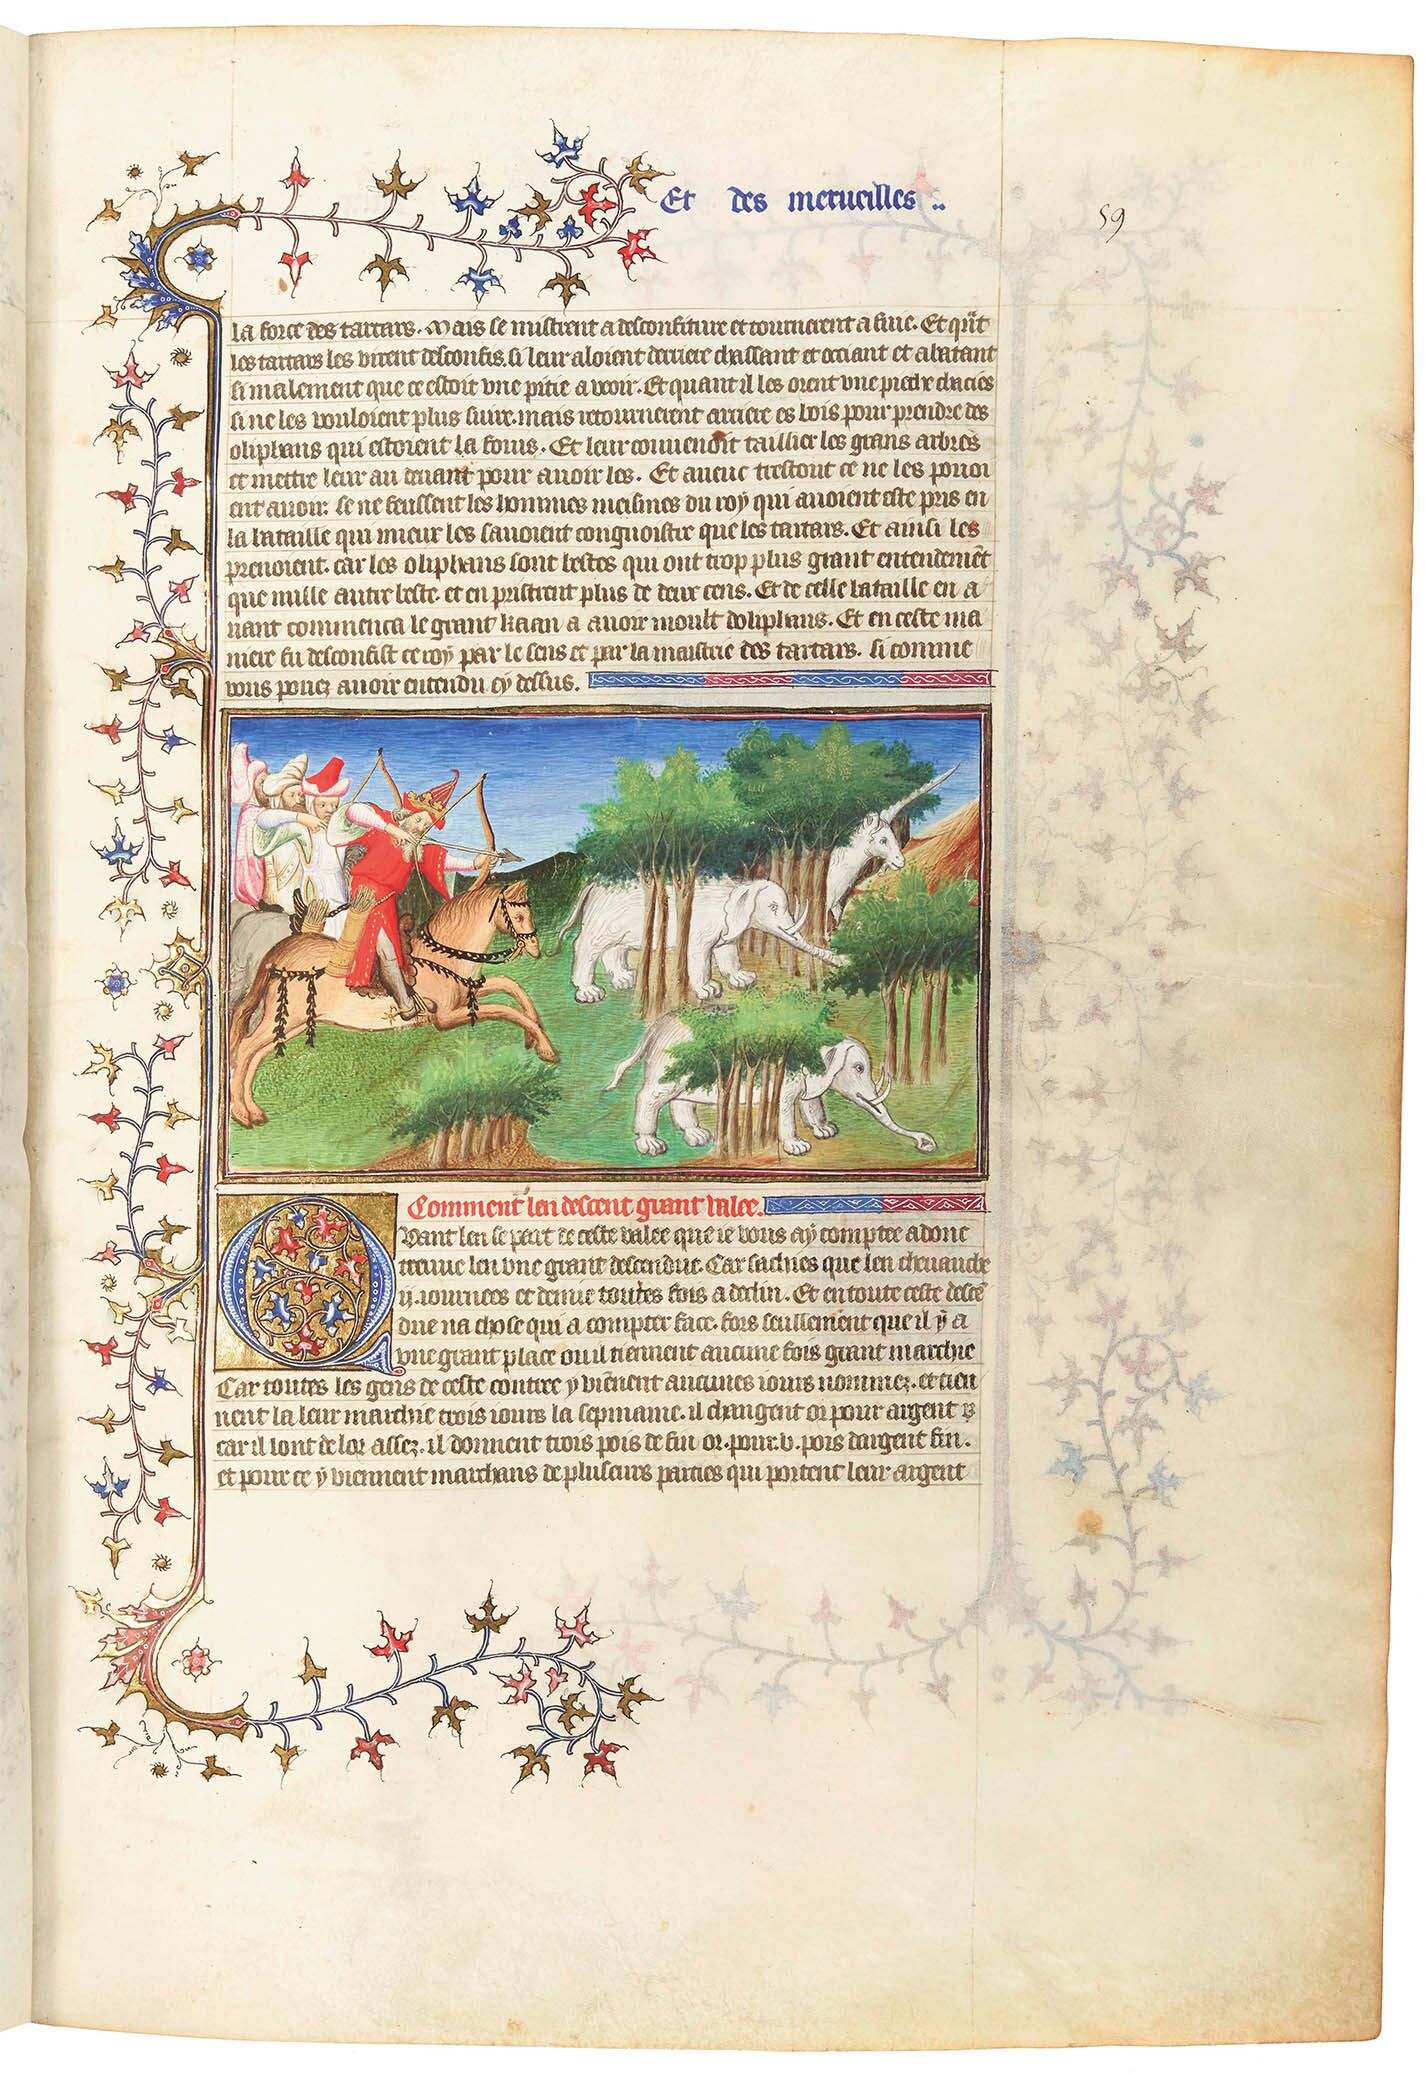 Et des merueilles
59
la force des tartars. Mais se mistrent a desconfiture et tournerent a fuie. Et qũt
les tartars les virent desconfis. si leur aloient derriere chassant et occiant et abatant
si malement que ce estoit vne pitie a veoir. Et quant il les orent vne piece chacies
si ne les vouloient plus suire. mais retournerent arriere es bois pour prendre des
oliphans qui estoient la fouis. Et leur conuenoit taillier les grans arbres
et mettre leur au deuant pour auoir les. Et auec trestout ce ne les pouoi
ent auoir. se ne feussent les hommes meismes du roy qui auoient este pris en
la bataille qui mieux les sauoient congnoistre que les tartars. Et ainsi les
prenoient. car les oliphans sont bestes qui ont trop plus grant entendemẽt
que nulle autre beste. et en pristrent plus de deux cens. Et de celle bataille en a
uant commenca le grant kaan a auoir moult doliphans. Et en ceste ma
niere fu desconfist ce roy par le sens et par la maistrie des tartars. si comme
vous pouez auoir entendu cy dessus.
Comment len descent grant valee.
Quant len se part de ceste valee que ie vous ay comptee adonc
treuue len vne grant descendue. Car sachies que len cheuauche
ij. iournees et demie toutes fois a declin. Et en toute ceste descẽ
due na chose qui a compter face. fors seullement que il y a
vne grant place ou il tiennent aucune fois grant marchie
Car toutes les gens de ceste contree y viẽnent aucunes iours nommez. et tien
nent la leur marchie trois iours la sepmaine. il changent or pour argent
car il lont de lor assez. il donnent trois pois de fin or. pour .v. pois dargent fin.
et pour ce y viennent marchans de pluseurs parties qui portent leur argent